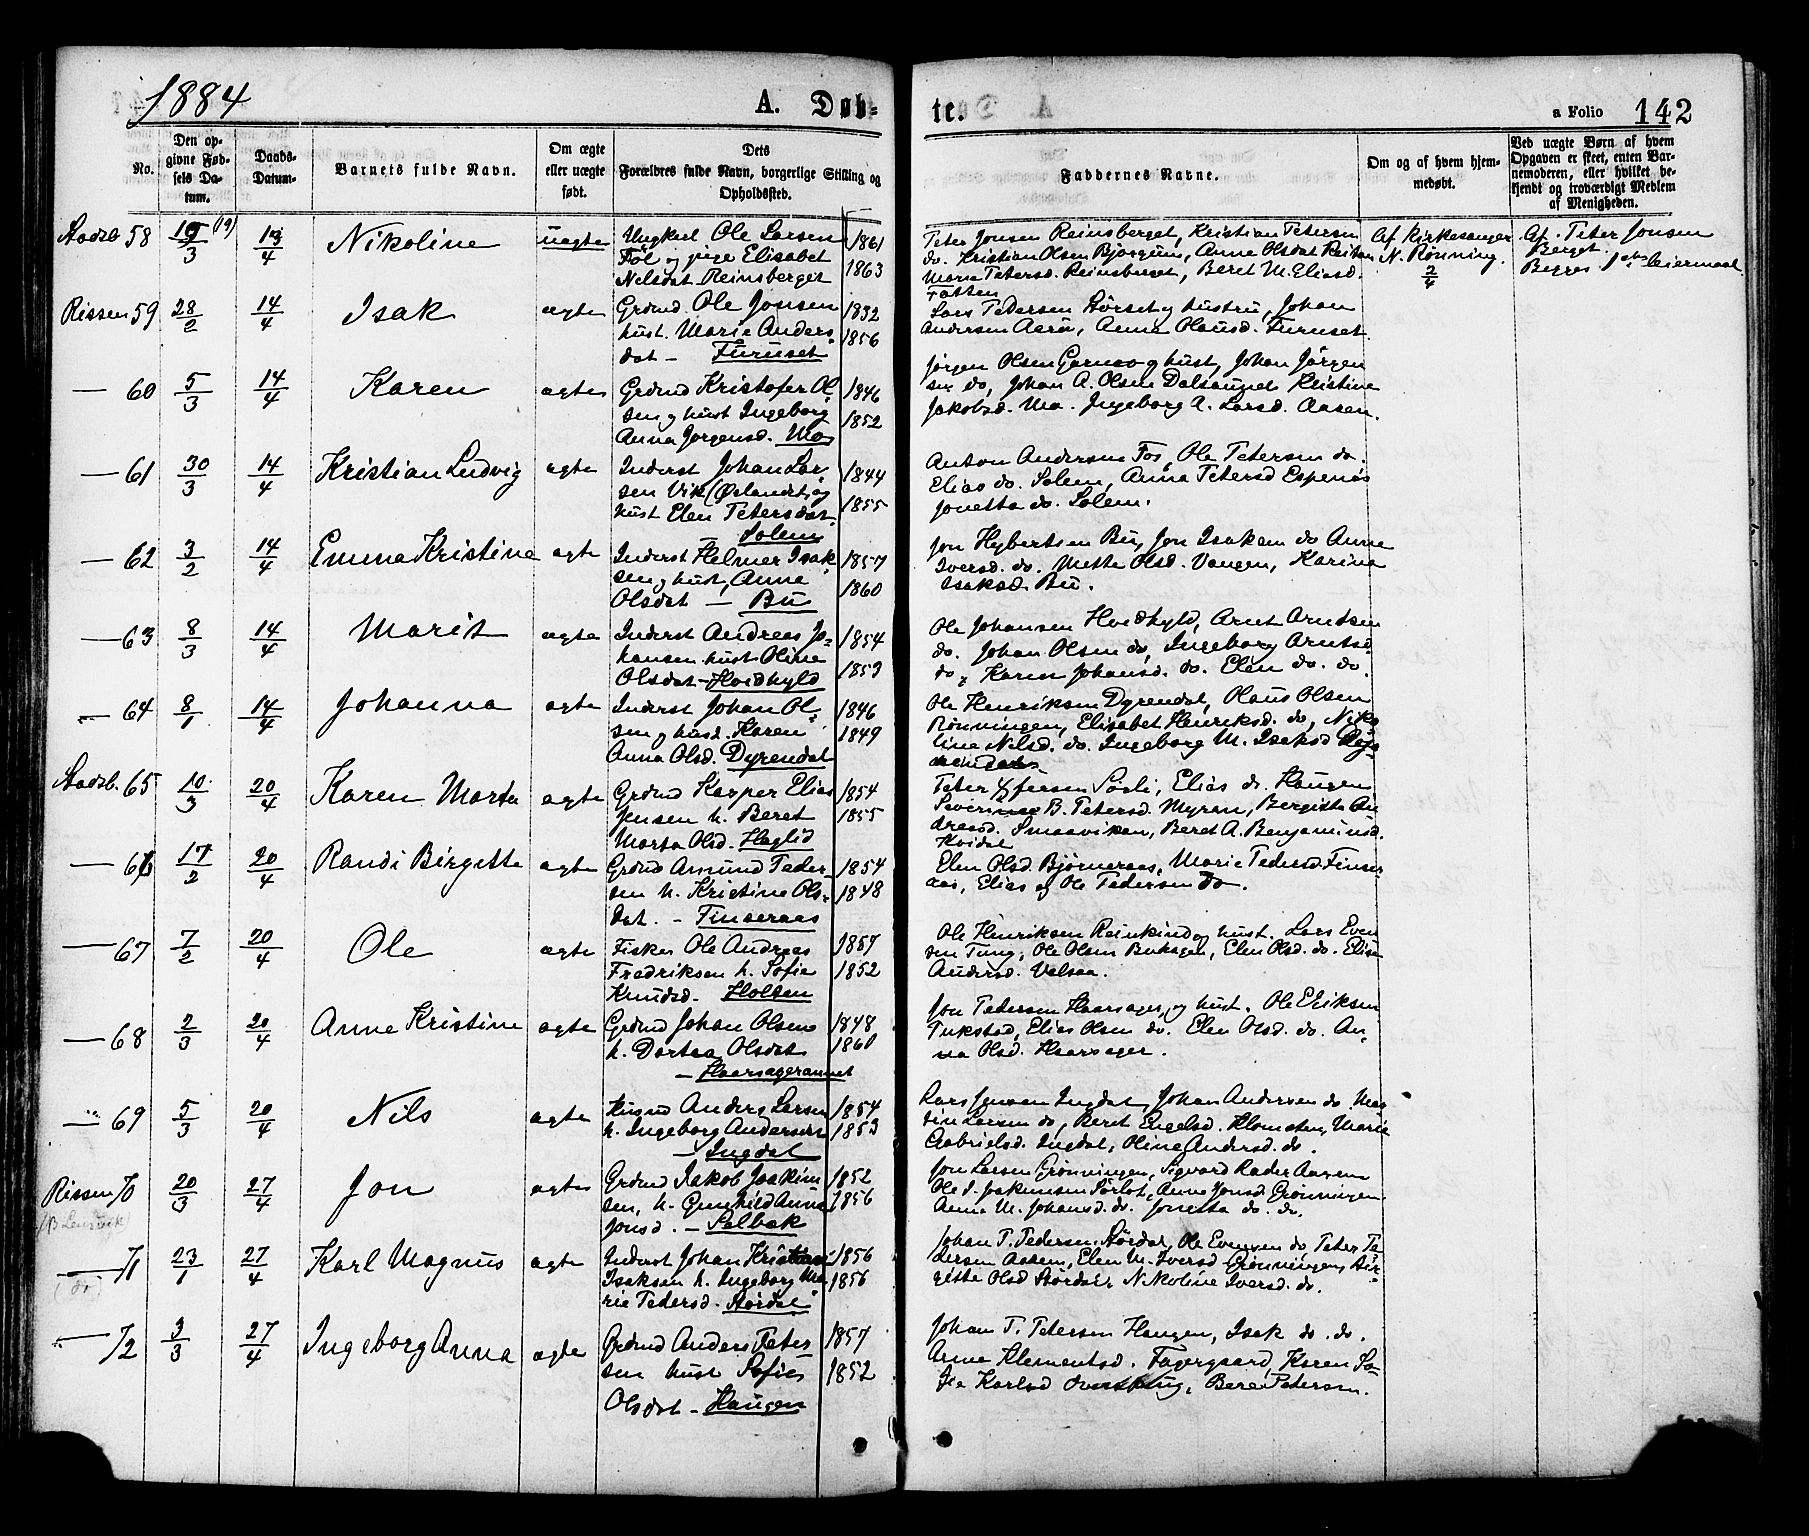 1884
A. Døb-
te.
a Folio 142
No.
Den op-
givne Fød-
sels Da-
tum.
Daabs-
Datum.
Barnets fulde Navn.
Om ægte
eller uægte
født.
Dets
Forældres fulde Navn, borgerlige Stilling og
Opholdssted.
Faddernes Navne.
Om og af hvem hjem-
medøbt.
Ved uægte Børn af hvem
Opgaven er skeet, enten Bar-
nemoderen, eller hvilket be-
kjendt og troværdigt Medlem
af Menigheden.
Stadsb 58
13/4
Nikoline
uægte
Ungkarl Ole Larsen
Föl og pige Elisabet
Nilsdat Reinsberget
1861
1863
Peter Jonsen Reinsberget, Kristian Petersen
do. Kristian Olsen Bjørgum, Anne Olsdat
Marie Petersd. Reinsbuset, Beret M. Eliasd.
Af Kirkesanger
N. Rønning.
2/4
Af Peter Jonsen
Berget.
Begges 1ste leiermaal
Rissen 59
28/2
14/4
Isak
ægte
Grdmd Ole Jonsen
hust. Marie Anders-
dat - Furuset
1832
1856
Lars Pedersen Störset og hustru, Johan
Andersen Aarø, Anna Olausd. Furuset
— 60
5/3
14/4
Karen
ægte
Grdmd Kristofer Ol-
sen og hust Ingeborg
Anna Jørgensd. Mo
1846
1852
Jørgen Olsen Garnes og hust, Johan Jörgen
sen do, Johan A. Olsen Dalsaunet Kristine
Jakobsd. Mo. Ingeborg A. Larsd. Aasen.
— 61
30/3
14/4
Kristian Ludvig
ægte
Inderst Johan Lar-
sen Vik (Ørlandet) og
hust Elen Petersdat.
- Solem
1844
1855
Anton Andersen Fos, Ole Petersen do.
Elias do. Solem, Anna Petersd Espenes
Jonetta do. Solem.
— 62
3/2
14/4
Emma Kristine
ægte
Inderst Helmer Isak-
sen og hust, Anna
Olsdat — Bu
1857
1860
Jon Hybertsen Bu, Jon Isaksen do Anne
Iversd. do. Mette Olsd. Vangen, Karina
Isaksd. Bu.
— 63
8/3
14/4
Marit
ægte
Inderst Andreas Jo-
hansen hust Oline
Olsdat - Hvidhyld
1854
1853
Ole Johansen Hvidhyld, Arnt Arntsen
do. Johan Olsen do, Ingeborg Arntsd.
do, Karen Johansd. do. Elen do. do.
— 64
8/1
14/4
Johanna
ægte
Inderst Johan Ol-
sen og hust. Karen
Anna Olsd. Dyrendal
1846
1849
Ole Henriksen Dyrendal, Olaus Olsen
Rønningen, Elisabet Henriksd. do, Niko
line Nilsd. do. Ingeborg M. Isaksd
Stadsb. 65
10/3
20/4
Karen Marta
ægte
Grdmd Kasper Elias
Jensen h. Beret
Marta Olsd. Haglid
1854
1855
Peter Søli, Elias do. Haugen
B. Petersd. Myran, Bergitta An
dreasd. Smaaviken, Beret A. Benjaminsd.
Kvidal
— 66
17/2
20/4
Randi Birgitta
ægte
Grdmd Amund Peder
sen h. Kristine Ols-
dat. - Finseraas
1854
1848
Elen Olsd Bjørneraas, Marie Pedersd. Finser
aas, Elias og Ole Pedersen do.
— 67
7/2
20/4
Ole
ægte
Fisker Ole Andreas
Fredriksen h. Sofie
Knudsd. Holten
1857
1852
Ole Henriksen Reinkind og hust. Lars Even
sen Tung, Ole Olsen Bukhagen, Elen Olsd. do. Elisa
Andersd. Valsaa.
— 68
2/3
20/4
Anne Kristine
ægte
Grdmd Johan Olsen
h. Dortea Olsdat
— Haarsageraunet
1848
1860
Jon Pedersen Haarsager, og hust. Ole Eriksen
Tukstad, Elias Olsen do. Elen Olsd. do. An-
na Olsd. Haarsager.
— 69
5/3
20/4
Nils
ægte
Husmd Anders Larsen
h. Ingeborg Andersdat
— Ingdal
1854
1853
Lars Jensen Ingdal, Johan Andersen do
Larsen do, Beret Engelsd. Klomsten, Marie
Gabrielsd. Ingdal, Oline Andersd. do.
Rissen 70
20/3
27/4
Jon
ægte
Grdmd Jakob Joakim
sen, h. Gunhild Anna
Jonsd. - Selbæk
1852
1856
Jon Larsen Grønningen, Sigvard Aasen
Ole J. Joakimsen Sørlot, Anne Jonsd Grønningen
Anna M. Johansd. do. Jonetta do. do.
— 71
(do)
23/1
27/4
Karl Magnus
ægte
Inderst Johan Kristian
Isaksen h. Ingeborg Ma-
rie Pedersd. Størdal
1856
1856
Johan P. Pedersen Størdal, Ole Evensen do, Peter Pe
dersen Aasem, Elen M. Iversd Grønningen, Bir-
gitte Olsd Størdal, Nikoline Iversd. do.
— 72
3/3
27/4
Ingeborg Anna
ægte
Grdmd Anders Peter
sen hust Sofie
Olsdat - Haugen
1857
1852
Johan P. Petersen Haugen, Isak do. do.
Anne Klementsd. Fagergaard, Karen So-
fie Karlsd Beret Petersen.